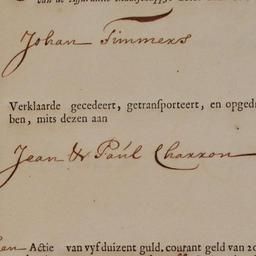 van de
Johan Timmers
Verklaarde gecedeert, getransporteert, en opged
ben, mits dezen aan
Jean & Paúl Charron
Actie van vyf duizent guld. courant geld van 20